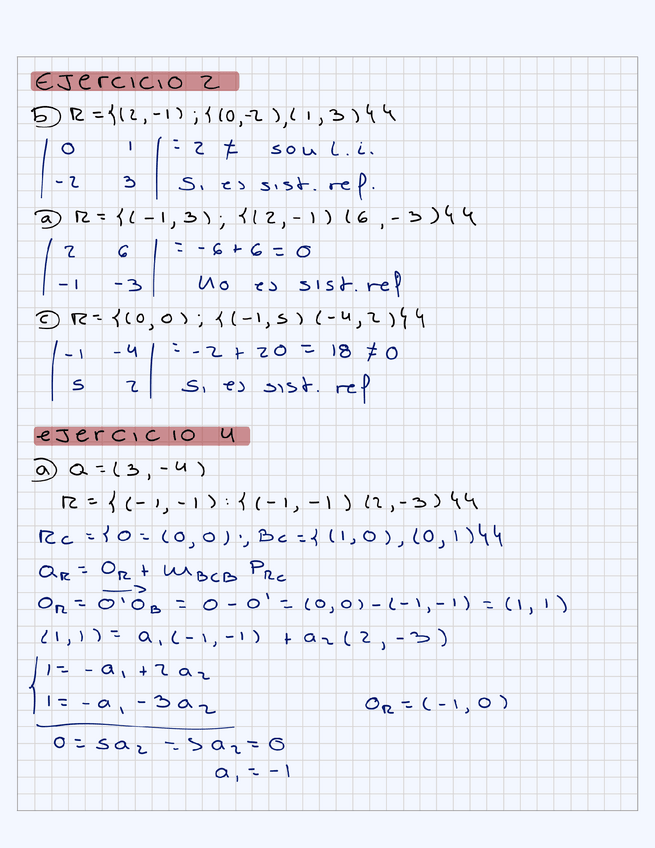 EJERCICIO 2
b) R = {(2, -1) ; {(0, -2), (1, 3)}}
| 0 1 | = 2 ≠ son l.i.
| -2 3 | Si es sist. ref.
a) R = {(-1, 3) ; {(2, -1) (6, -3)}}
| 2 6 | = -6 + 6 = 0
| -1 -3 | No es sist. ref
c) R = {(0, 0) ; {(-1, 5) (-4, 2)}}
| -1 -4 | = -2 + 20 = 18 ≠ 0
| 5 2 | Si es sist. ref
EJERCICIO 4
a) Q = (3, -4)
R = {(-1, -1) : {(-1, -1) (2, -3)}}
Rc = {O = (0, 0) ; Bc = {(1, 0), (0, 1)}}
QR = OR + MBCB PRC
OR = O'OB = O - O' = (0, 0) - (-1, -1) = (1, 1)
(1, 1) = a1 (-1, -1) + a2 (2, -3)
{ 1 = -a1 + 2a2
1 = -a1 - 3a2 OR = (-1, 0)
0 = 5a2 = 5a2 = 0
a1 = -1